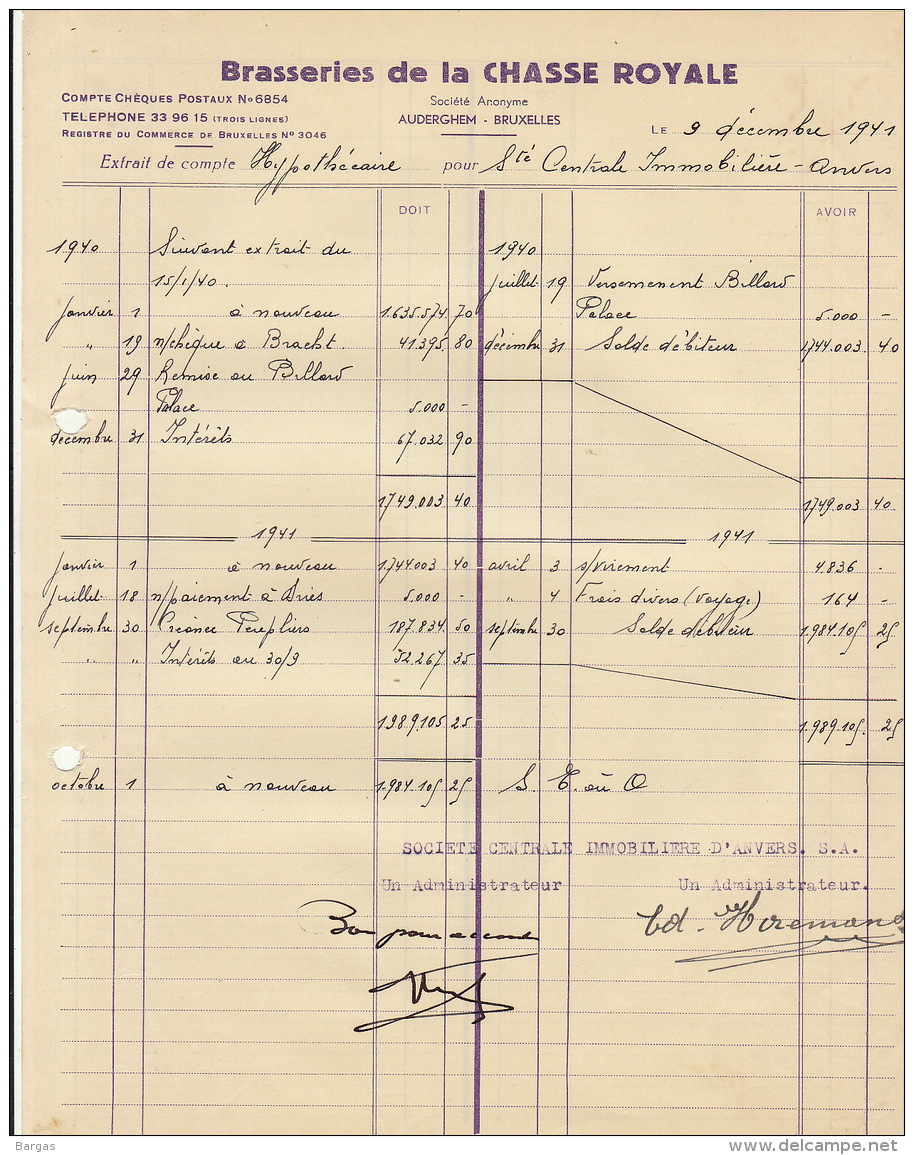 Brasseries de la CHASSE ROYALE
COMPTE CHÈQUES POSTAUX No 6854
Société Anonyme
TELEPHONE 33 96 15 (TROIS LIGNES)
AUDERGHEM - BRUXELLES
REGISTRE DU COMMERCE DE BRUXELLES No 3046
LE 9 décembre 1941
Extrait de compte Hypothécaire pour Sté Centrale Immobilière - Anvers
DOIT AVOIR
1940 Suivant extrait du 1940
15/1/40. juillet 19 Versemenent Billard
janvier 1 à nouveau 1.635.574 70 Palace 5.000 -
" 19 n/chèque à Bracht. 41.395 80 décembre 31 Solde débiteur 1744.003 40
juin 29 Remise au Billard
Palace 5.000 -
décembre 31 Intérêts 67.032 90
1749.003 40 1749.003 40
1941 1941
janvier 1 à nouveau 1.744.003 40 avril 3 s/virement 4.836 -
juillet 18 n/paiement à Dries 5.000 - " 4 Frais divers (voyage) 164 -
septembre 30 Créance 187.834 50 septembre 30 Solde débiteur 1.984.105 25
" " Intérêts au 30/9 52.267 35
1989.105 25 1.989.105 25
octobre 1 à nouveau 1.984.105 25 S. E. ou O
SOCIETE CENTRALE IMMOBILIERE D'ANVERS. S.A.
Un Administrateur Un Administrateur.
Bon pour accord
Bargas
www.delcampe.net